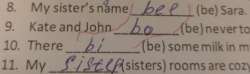 8. My sister's name bee (be) Sara.
9. Kate and John bo (be) never to
10. There bi (be) some milk in m
11. My sister (sisters) rooms are coz